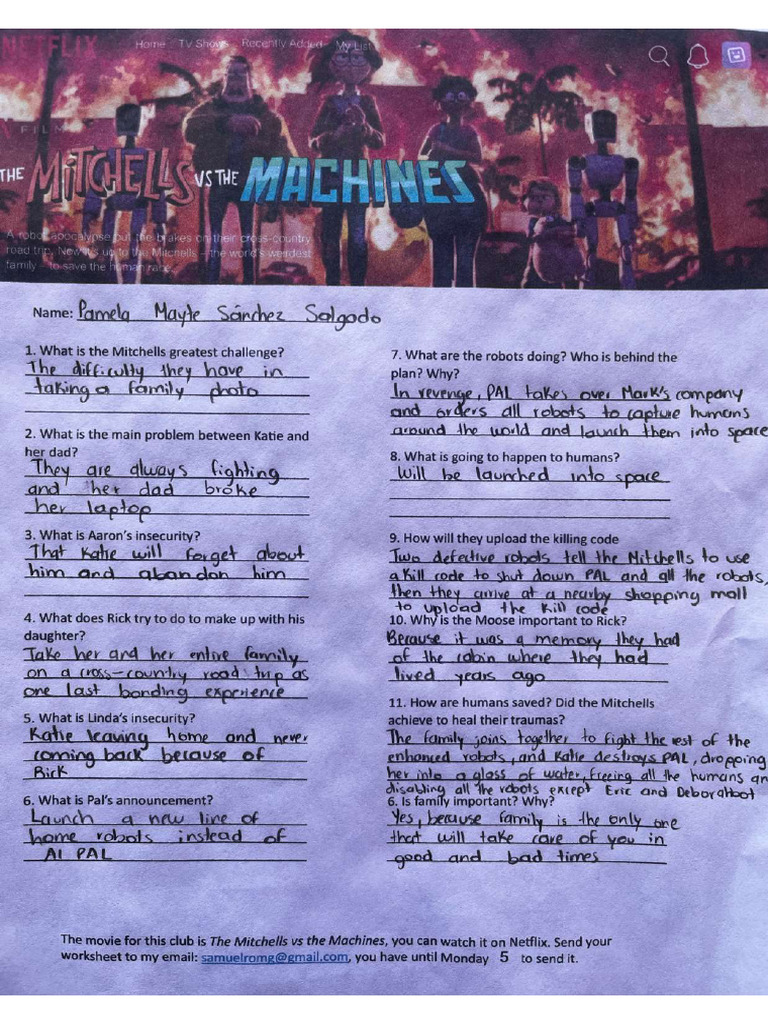 NETFLIX
Home TV Shows Recently Added My List
FILM
THE MITCHELLS VS THE MACHINES
A robot apocalypse put the brakes on their cross-country
road trip. Now it's up to the Mitchells – the world's weirdest
family – to save the human race.
Name: Pamela Mayte Sánchez Salgado
1. What is the Mitchells greatest challenge?
The difficulty they have in
taking a family photo
2. What is the main problem between Katie and
her dad?
They are always fighting
and her dad broke
her laptop
3. What is Aaron's insecurity?
That Katie will forget about
him and abandon him
4. What does Rick try to do to make up with his
daughter?
Take her and her entire family
on a cross-country road trip as
one last bonding experience
5. What is Linda's insecurity?
Katie leaving home and never
coming back because of
Rick
6. What is Pal's announcement?
Launch a new line of
home robots instead of
AI PAL
7. What are the robots doing? Who is behind the
plan? Why?
In revenge, PAL takes over Mark's company
and orders all robots to capture humans
around the world and launch them into space
8. What is going to happen to humans?
Will be launched into space
9. How will they upload the killing code
Two defective robots tell the Mitchells to use
a kill code to shut down PAL and all the robots,
then they arrive at a nearby shopping mall
to upload the kill code
10. Why is the Moose important to Rick?
Because it was a memory they had
of the cabin where they had
lived years ago
11. How are humans saved? Did the Mitchells
achieve to heal their traumas?
The family joins together to fight the rest of the
enhanced robots, and Katie destroys PAL, dropping
her into a glass of water, freeing all the humans an
disabling all the robots except Eric and Deborahbot
6. Is family important? Why?
Yes, because family is the only one
that will take care of you in
good and bad times
The movie for this club is The Mitchells vs the Machines, you can watch it on Netflix. Send your
worksheet to my email: samuelromg@gmail.com, you have until Monday 5 to send it.